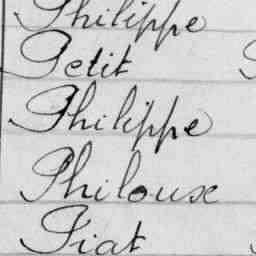 Philippe
Petit
Philippe
Philoux
Piat